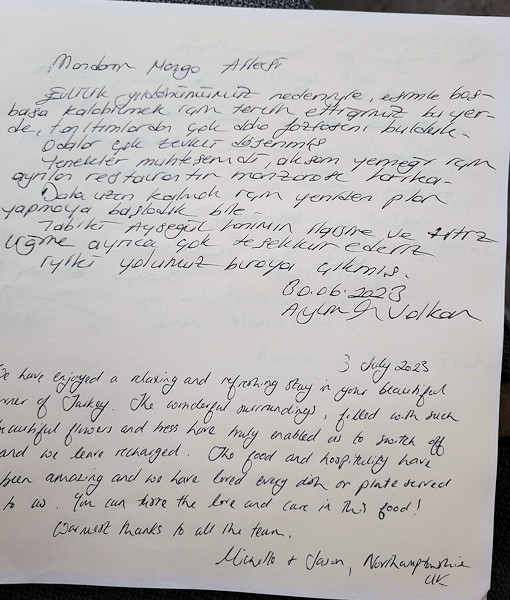 Mandam Margo Ailesi
Evlilik yıldönümümüz nedeniyle, eşimle baş-
başa kalabilmek için tercih ettiğimiz bu yer-
de, tanıtımlardan çok daha fazlasını bulduk.
Odalar çok zevkli döşenmiş
Yemekler muhteşemdi, akşam yemeği için
ayrılan restaurantın manzarası harika.
Daha uzun kalmak için yeniden plan
yapmaya başladık bile.
Tabiki Ayşegül hanımın ilgisine ve titiz
liğine ayrıca çok teşekkür ederiz
iyiki yolumuz buraya çıkmış.
30.06.2023
Volkan
3 July 2023
We have enjoyed a relaxing and refreshing stay in your beautiful
corner of Turkey. The wonderful surroundings, filled with such
beautiful flowers and trees have truly enabled us to switch off
and we leave recharged. The food and hospitality have
been amazing and we have loved every dish or plate served
to us. You can taste the love and care in this food!
Warmest thanks to all the team.
Michelle + Jason, Northamptonshire
UK